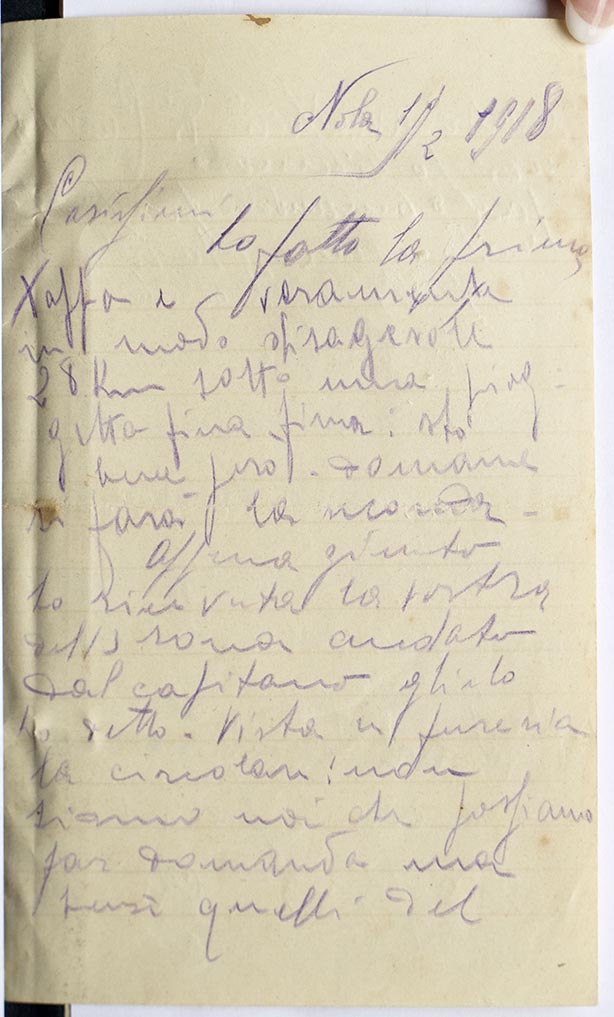 Nola 1/2 1918
Carissimi
ho fatto la prima
tappa e veramente
in modo spiagevole
28 Km sotto una piog-
getta fina fina: sto
bene però. Domani
si farà la seconda -
Appena giunto
ho ricevuta la vostra
dell'3 sono andato
dal capitano glielo
ho detto. Vista in fureria
la circolare: non
siamo noi che possiamo
far domanda ma
bensì quelli del